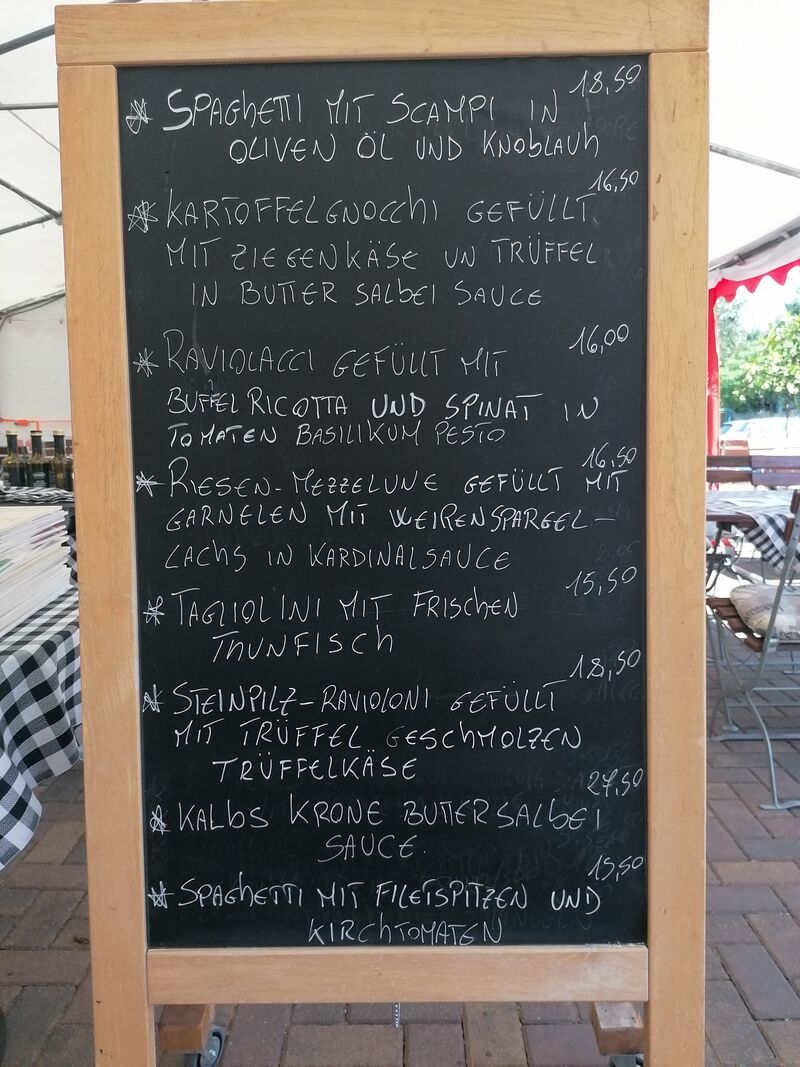 18,50
* SPAGHETTI MIT SCAMPI IN
OLIVEN ÖL UND KNOBLAUH
16,50
* KARTOFFELGNOCCHI GEFÜLLT
MIT ZIEGENKÄSE UN TRÜFFEL
IN BUTTER SALBEI SAUCE
16,00
* RAVIOLACCI GEFÜLLT MIT
BUFFEL RICOTTA UND SPINAT IN
TOMATEN BASILIKUM PESTO
16,50
* RIESEN-MEZZELUNE GEFÜLLT MIT
GARNELEN MIT WEIßENSPARGEL-
LACHS IN KARDINALSAUCE
15,50
* TAGLIOLINI MIT FRISCHEN
THUNFISCH
18,50
* STEINPILZ-RAVIOLONI GEFÜLLT
MIT TRÜFFEL GESCHMOLZEN
TRÜFFELKÄSE
27,50
* KALBS KRONE BUTTERSALBEI
SAUCE.
15,50
* SPAGHETTI MIT FILETSPITZEN UND
KIRCHTOMATEN